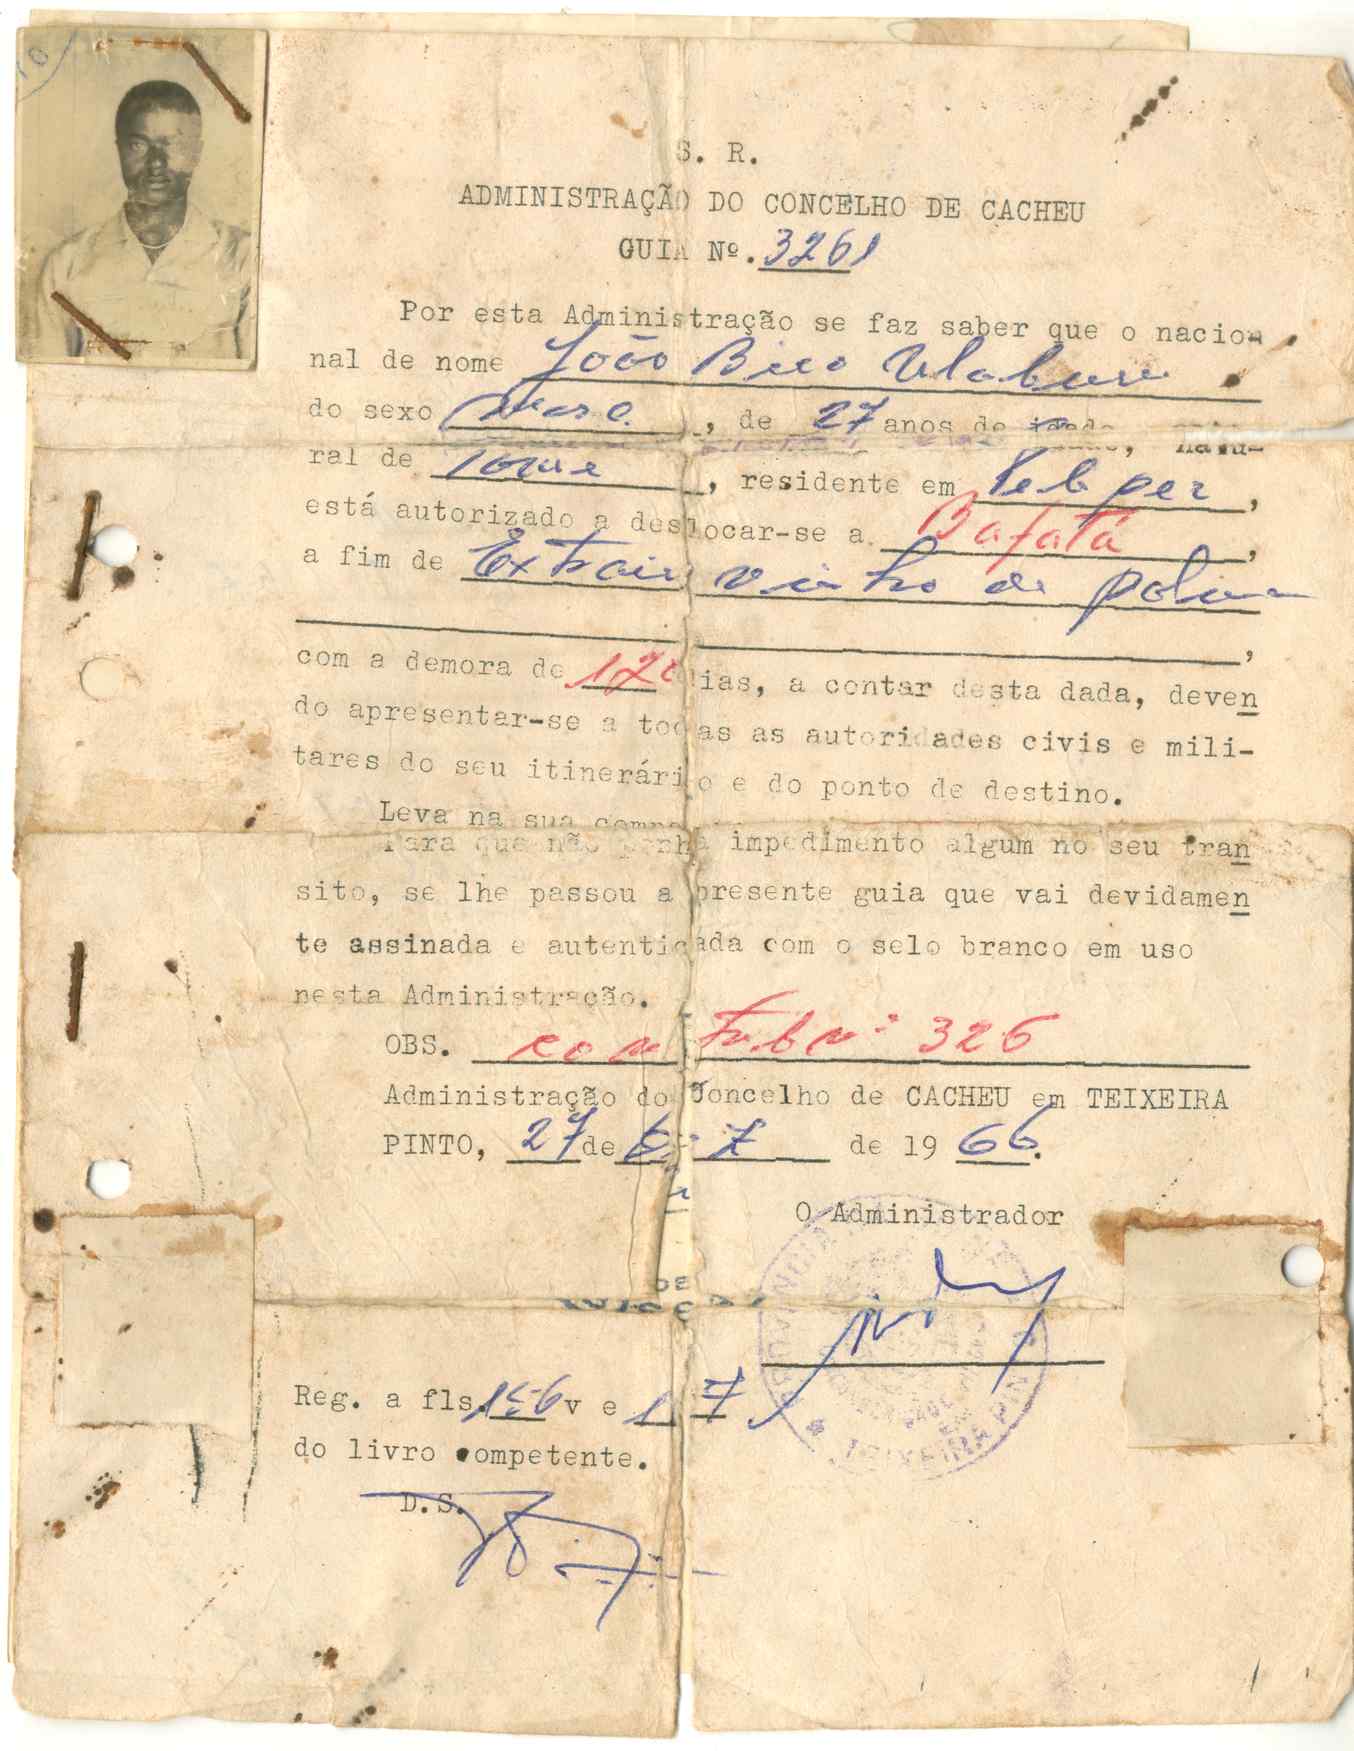 S. R.
ADMINISTRAÇÃO DO CONCELHO DE CACHEU
GUIA Nº. 3261
Por esta Administração se faz saber que o nacio-
nal de nome João
do sexo masc. , de 27 anos de idade, natu-
ral de , residente em ,
está autorizado a deslocar-se a Bafatá ,
a fim de Extrair vinho de palma
,
com a demora de 120 dias, a contar desta dada, deven
do apresentar-se a todas as autoridades civis e mili-
tares do seu itinerário e do ponto de destino.
Leva na sua
Para que não ponha impedimento algum no seu tran
sito, se lhe passou a presente guia que vai devidamen
te assinada e autenticada com o selo branco em uso
nesta Administração.
OBS. nº 326
Administração do Concelho de CACHEU em TEIXEIRA
PINTO, 27 de 7 de 19 66.
O Administrador
Reg. a fls. 156 v e 157
do livro competente.
D.S.
TEIXEIRA PINTO